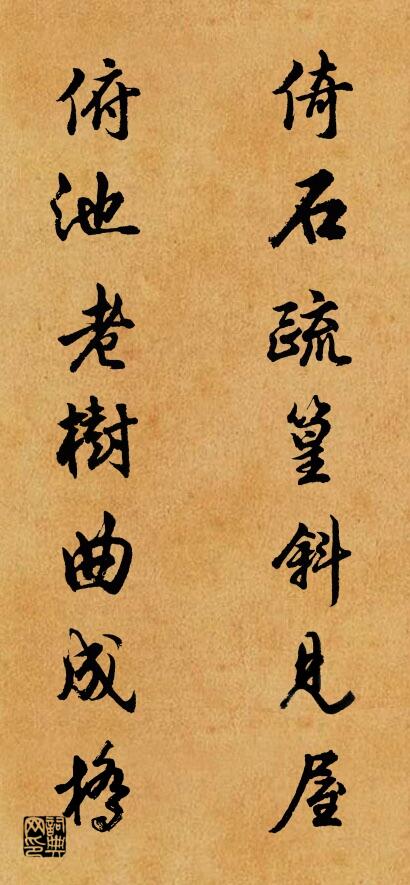 倚石疏篁斜見屋
俯池老樹曲成橋
詞典网印